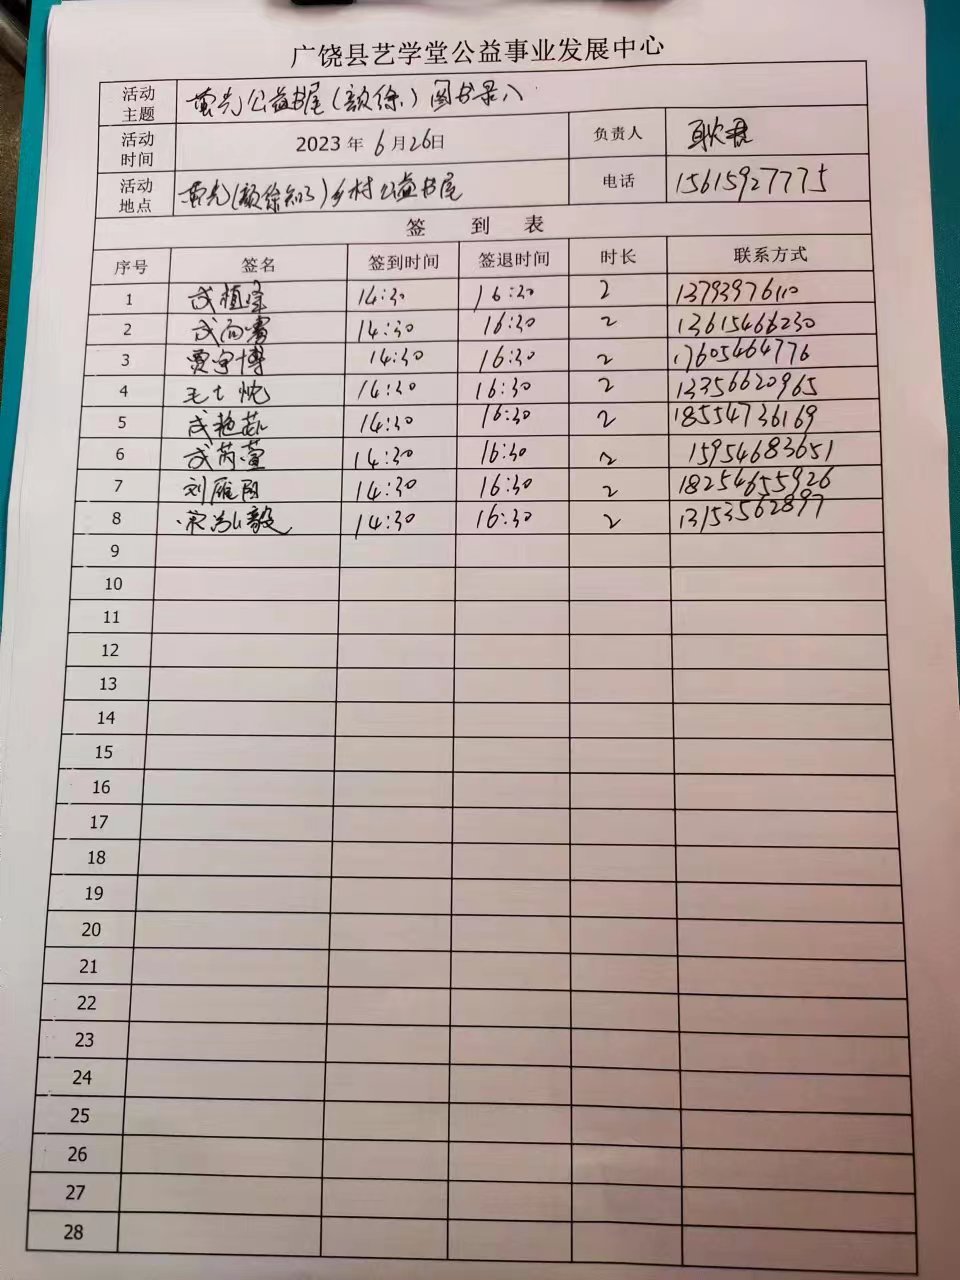 广饶县艺学堂公益事业发展中心
活动主题 萤光公益书屋(颜徐)图书录入
活动时间 2023年6月26日 负责人
活动地点 萤光(颜徐)乡村公益书屋 电话 15615927775
签到表
序号 签名 签到时间 签退时间 时长 联系方式
1 14:30 16:30 2 13793976110
2 14:30 16:30 2 13615466230
3 贾宇博 14:30 16:30 2 17605464776
4 14:30 16:30 2 13356620965
5 14:30 16:30 2 18554736169
6 成芮萱 14:30 16:30 2 15954683651
7 刘雁阳 14:30 16:30 2 18254655926
8 14:30 16:30 2 13153562897
9
10
11
12
13
14
15
16
17
18
19
20
21
22
23
24
25
26
27
28